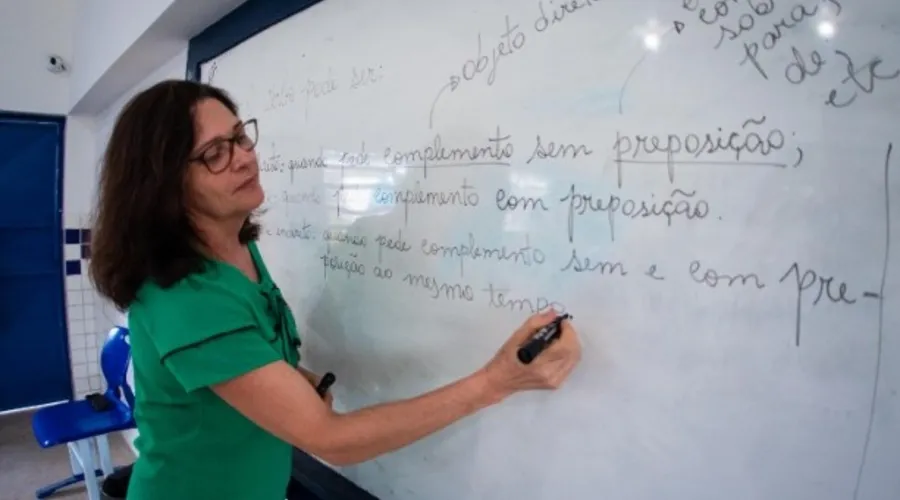 objeto direto
com
sob
para,
de etc
pode ser:
quando pede complemento sem preposição;
quando complemento com preposição.
e indireto: quando pede complemento sem e com pre-
posição ao mesmo tempo